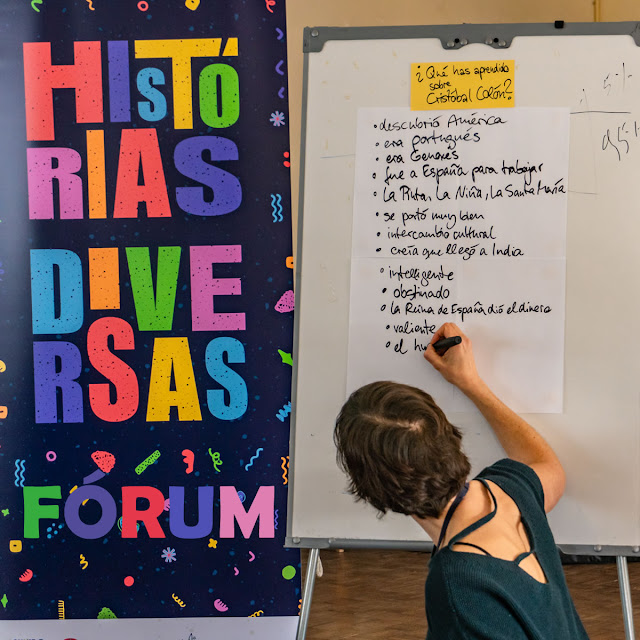 HIS
TÓ
RIAS
DI
VE
R
SAS
FÓRUM
¿Qué has aprendido
sobre
Cristóbal Colón?
• descubrió América
• era portugués
• era Genovés
• fue a España para trabajar
• La Pinta, La Niña, La Santa María
• se portó muy bien
• intercambio cultural
• creía que llegó a India
• intelligente
• obstinado
• la Reina de España dió el dinero
• valiente
• el hu